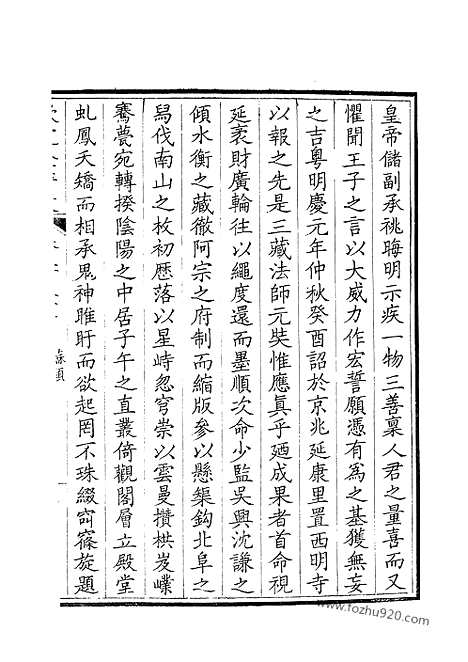 皇帝儲副承祧晦明示疾一物三善稟人君之量喜而又
懼聞王子之言以大威力作宏誓願憑有為之基獲無妄
之吉粵明慶元年仲秋癸酉詔於京兆延康里置西明寺
以報之先是三藏法師元奘惟應真乎廼成果者首命視
延袤財廣輪往以繩度還而墨順次命少監吳興沈謙之
傾水衡之藏徹阿宗之府制而縮版參以懸槷鈎北阜之
舄伐南山之枚初歷落以星峙忽穹崇以雲曼攢栱岌嶫
騫甍宛轉揆陰陽之中居子午之直叢倚觀閣層立殿堂
虬鳳夭矯而相承鬼神睢盱而欲起罔不珠綴窅窱旋題
蘇頲
www.fozhu920.com